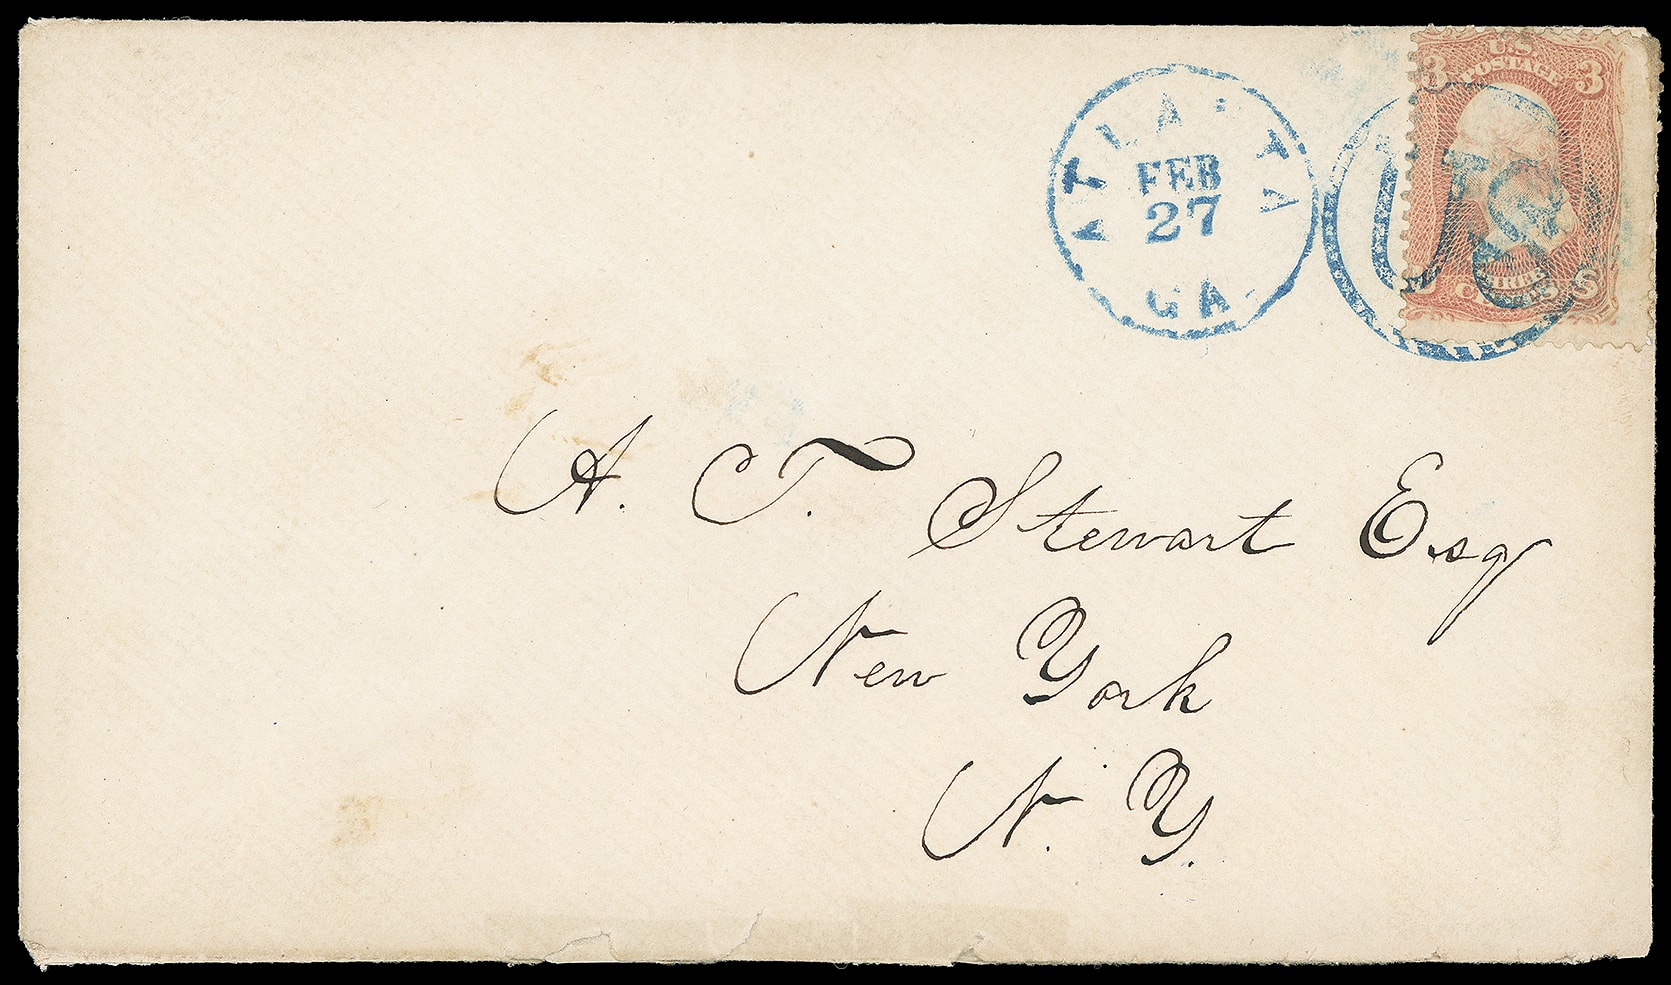 ATLANTA
FEB
27
GA
U.S.
POSTAGE
3 3
US
THREE
CENTS
A. T. Stewart Esq
New York
N. Y.